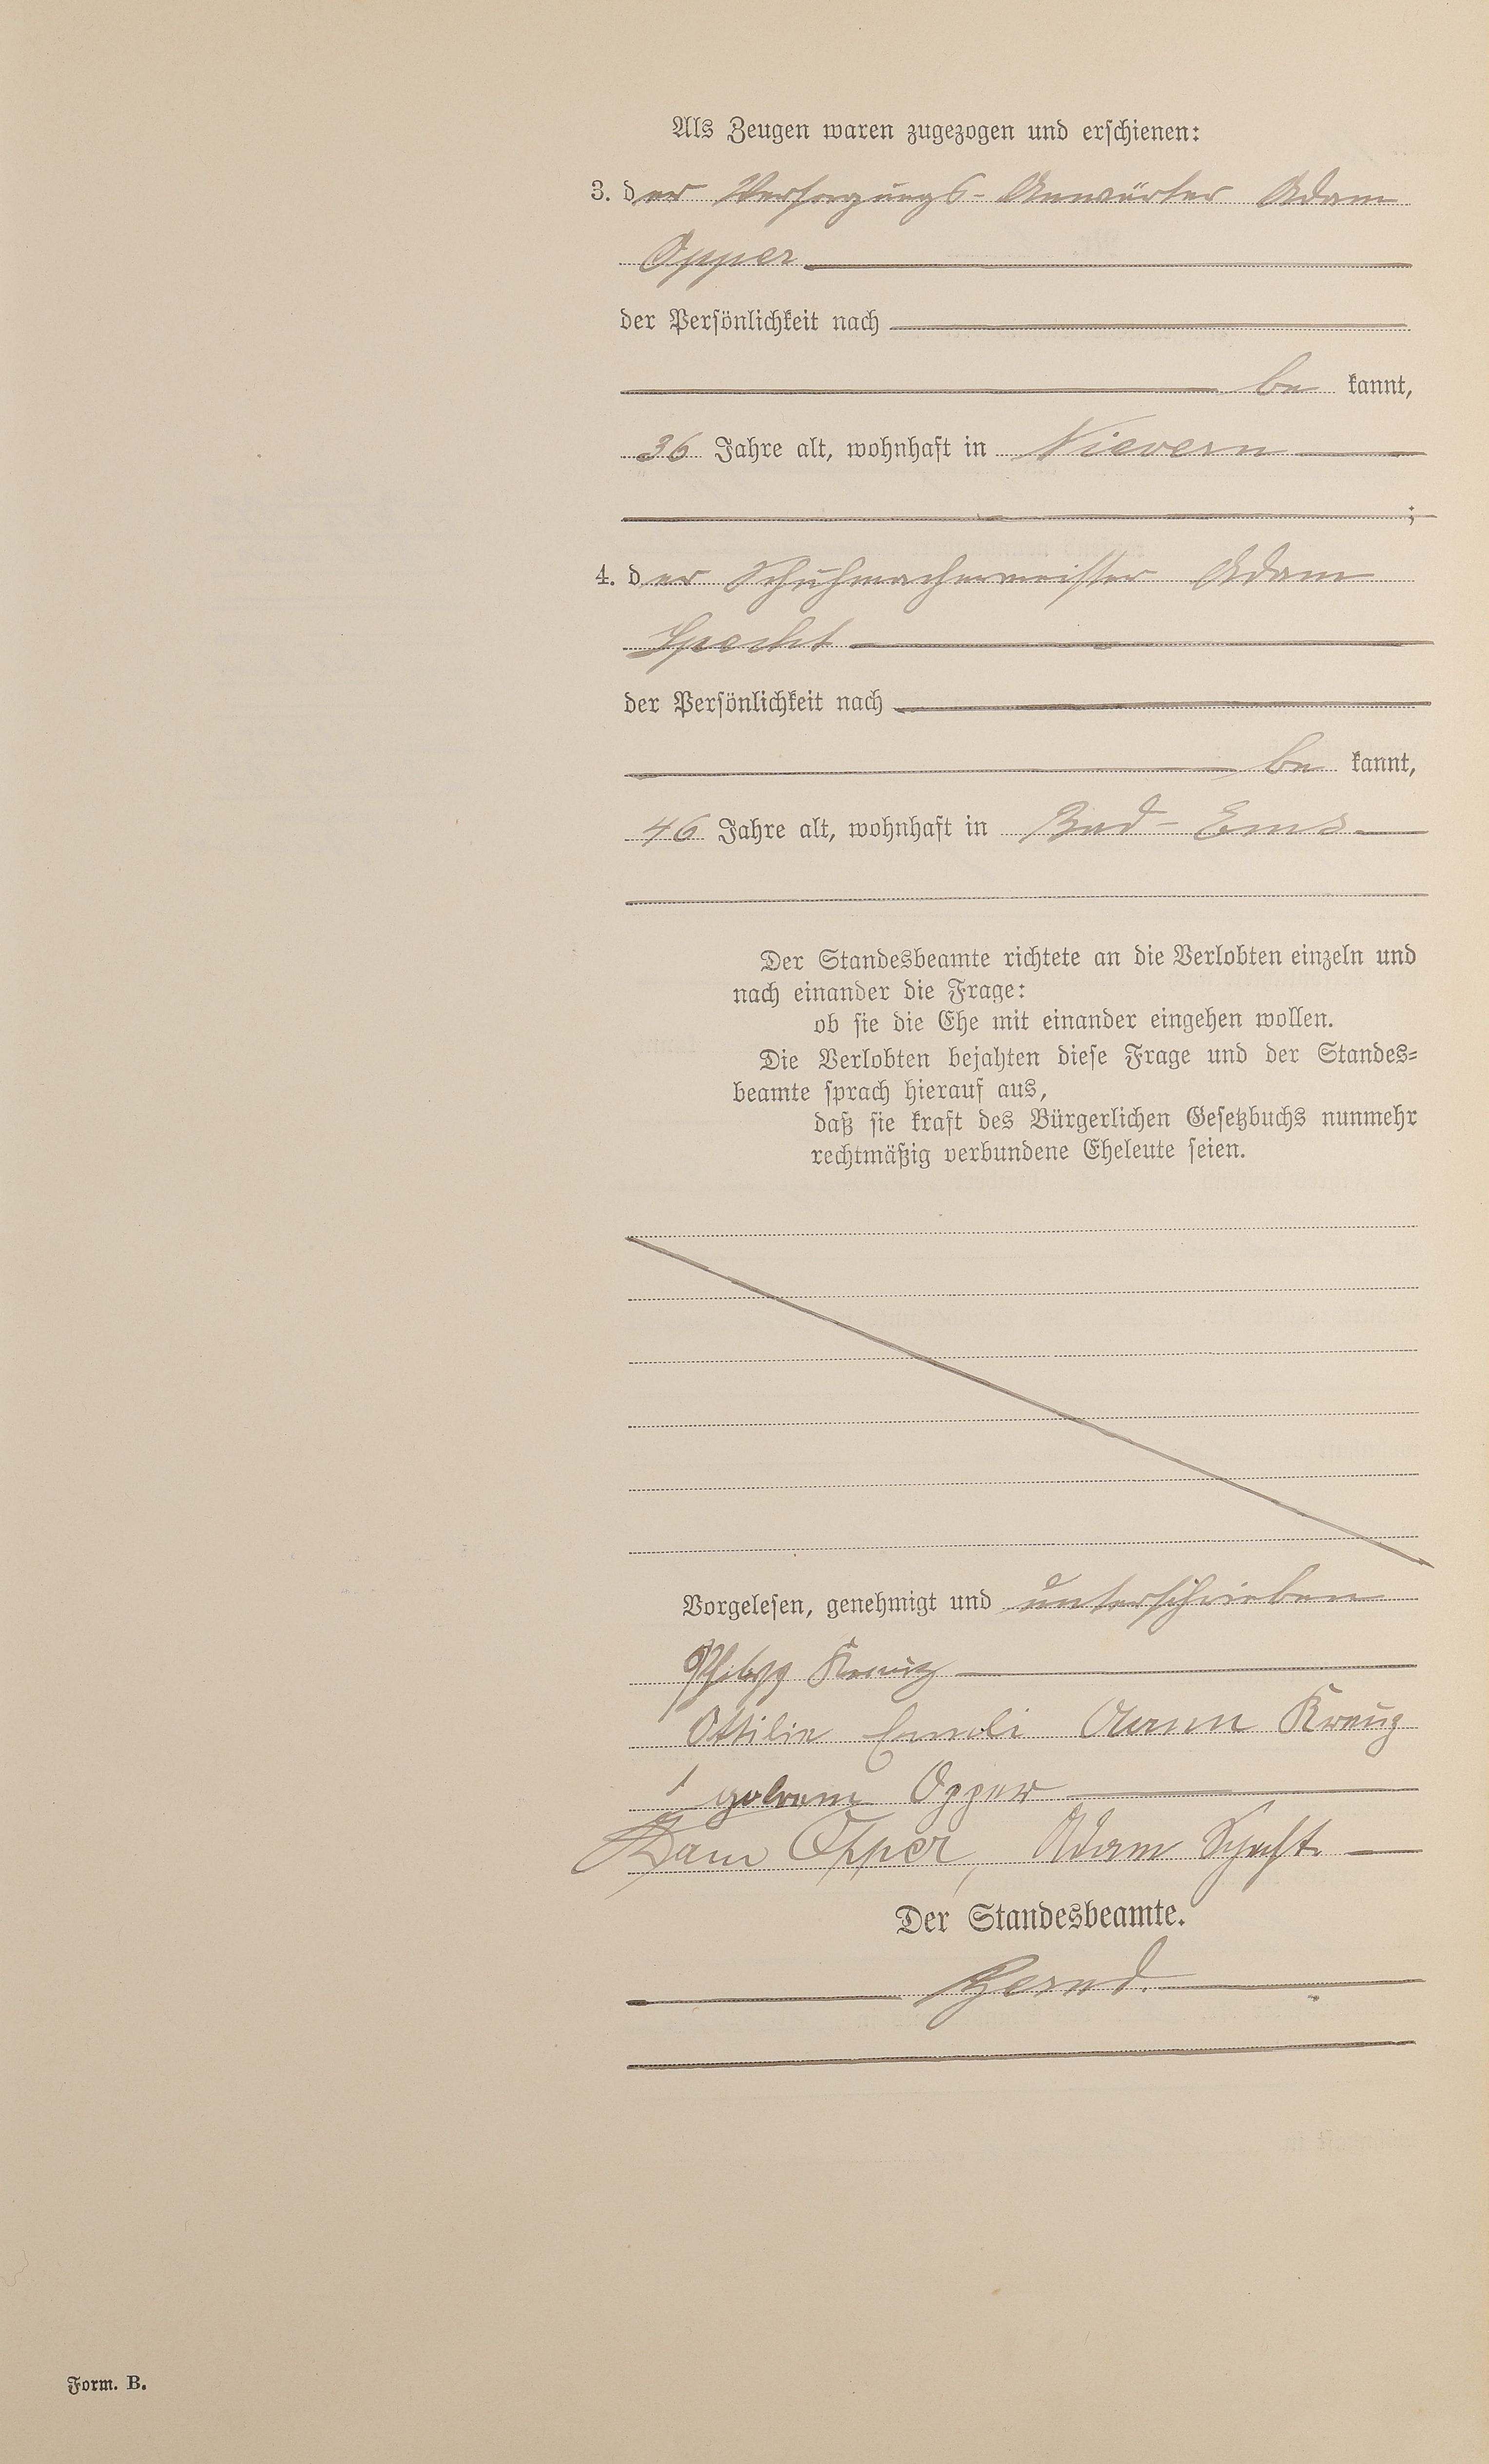 Als Zeugen waren zugezogen und erschienen:
3. der Versorgungs-Anwärter Adam
Opper
der Persönlichkeit nach
be kannt,
36 Jahre alt, wohnhaft in Nievern
;
4. der Schuhmachermeister Adam
Specht
der Persönlichkeit nach
be kannt,
46 Jahre alt, wohnhaft in Bad-Ems
Der Standesbeamte richtete an die Verlobten einzeln und
nach einander die Frage:
ob sie die Ehe mit einander eingehen wollen.
Die Verlobten bejahten diese Frage und der Standes-
beamte sprach hierauf aus,
daß sie kraft des Bürgerlichen Gesetzbuchs nunmehr
rechtmäßig verbundene Eheleute seien.
Vorgelesen, genehmigt und unterschrieben
Philipp Kreuz
Ottilie Kreuz
Opper
Adam Opper, Adam Specht
Der Standesbeamte.
Form. B.